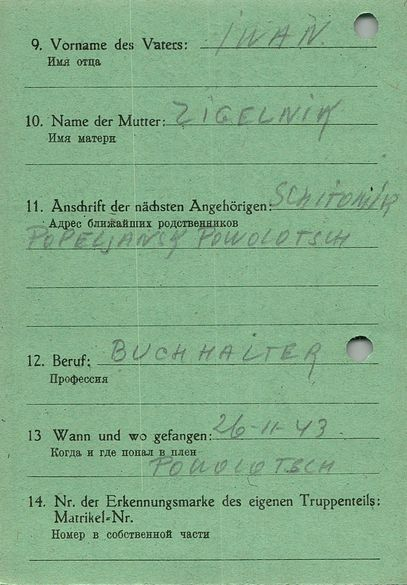 9. Vorname des Vaters: IWAN
Имя отца
10. Name der Mutter: ZIGELNIK
Имя матери
11. Anschrift der nächsten Angehörigen: SCHITOMIR
Адрес ближайших родственников
POPELJANSK POWOLOTSCH
12. Beruf: BUCHHALTER
Профессия
13 Wann und wo gefangen: 26-11-43
Когда и где попал в плен
POWOLOTSCH
14. Nr. der Erkennungsmarke des eigenen Truppenteils:
Matrikel-Nr.
Номер в собственной части